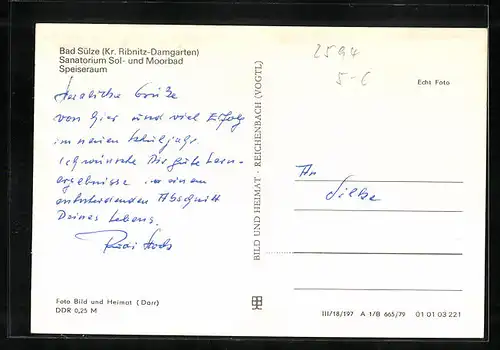 Bad Sülze (Kr. Ribnitz-Damgarten)
Sanatorium Sol- und Moorbad
Speiseraum
2594
5-6
Echt Foto
Herzliche Grüße
von hier und viel Erfolg
im neuen Schuljahr.
Ich wünsche Dir gute Lern-
ergebnisse in einem
entscheidenden Abschnitt
Deines Lebens.
An
Silke
BILD UND HEIMAT · REICHENBACH (VOGTL)
Foto Bild und Heimat (Darr)
DDR 0,25 M
III/18/197 A 1/B 665/79 01 01 03 221